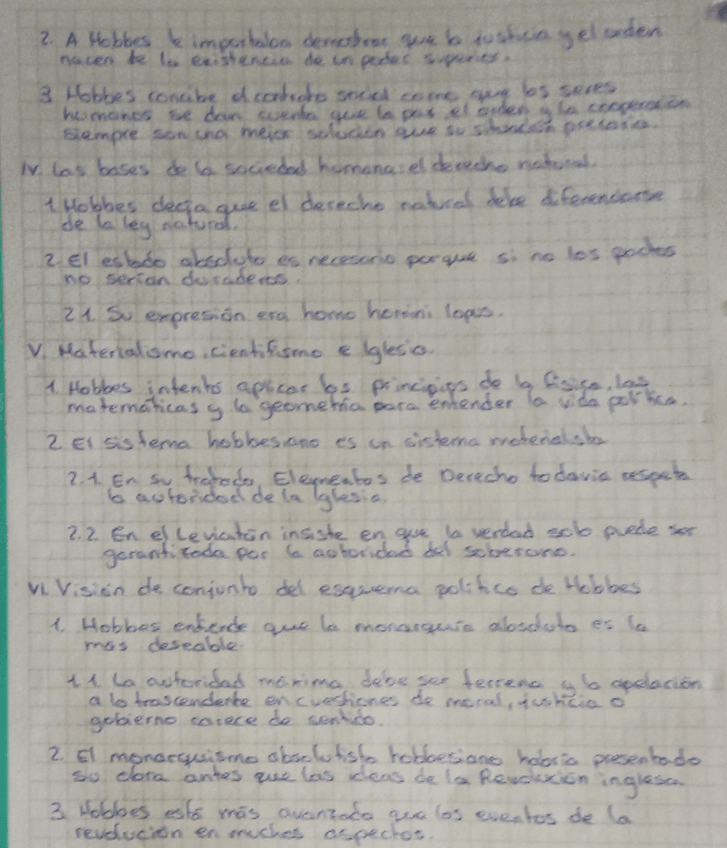 2. A Hobbes le importaba demostrar que la justicia y el orden
nacen de la existencia de un poder superior.
3 Hobbes concibe el contrato social como que los seres
humanos se dan cuenta que la paz, el orden y la cooperación
siempre son una mejor solución que su situación precaria.
IV. Las bases de la sociedad humana: el derecho natural.
1 Hobbes decía que el derecho natural debe diferenciarse
de la ley natural.
2. El estado absoluto es necesario porque si no los pactos
no serían duraderos.
2.1. Su expresión era homo homini lopus.
V. Materialismo, cientifismo e Iglesia.
1. Hobbes intentó aplicar los principios de la física, las
matemáticas y la geometría para entender la vida política.
2. El sistema hobbesiano es un sistema materialista
2.1. En su tratado, Elementos de Derecho todavía respeta
la autoridad de la Iglesia.
2.2. En el Leviatán insiste en que la verdad solo puede ser
garantizada por la autoridad del soberano.
VI. Visión de conjunto del esquema político de Hobbes
1. Hobbes entiende que la monarquía absoluta es la
más deseable.
1.1. La autoridad máxima debe ser terrena y la apelación
a lo trascendente en cuestiones de moral, justicia o
gobierno carece de sentido.
2. El monarquismo absolutista hobbesiano habría presentado
su obra antes que las ideas de la Revolución inglesa.
3. Hobbes está más avanzado que los eventos de la
revolución en muchos aspectos.